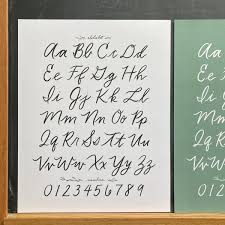 Aa Bb Cc Dd
Ee Ff Gg Hh
Ii Jj Kk Ll
Mm Nn Oo Pp
Qq Rr Ss Tt Uu
Vv Ww Xx Yy Zz
0123456789
Aa
Ee
Ii
Mm
Qq
Vv
01